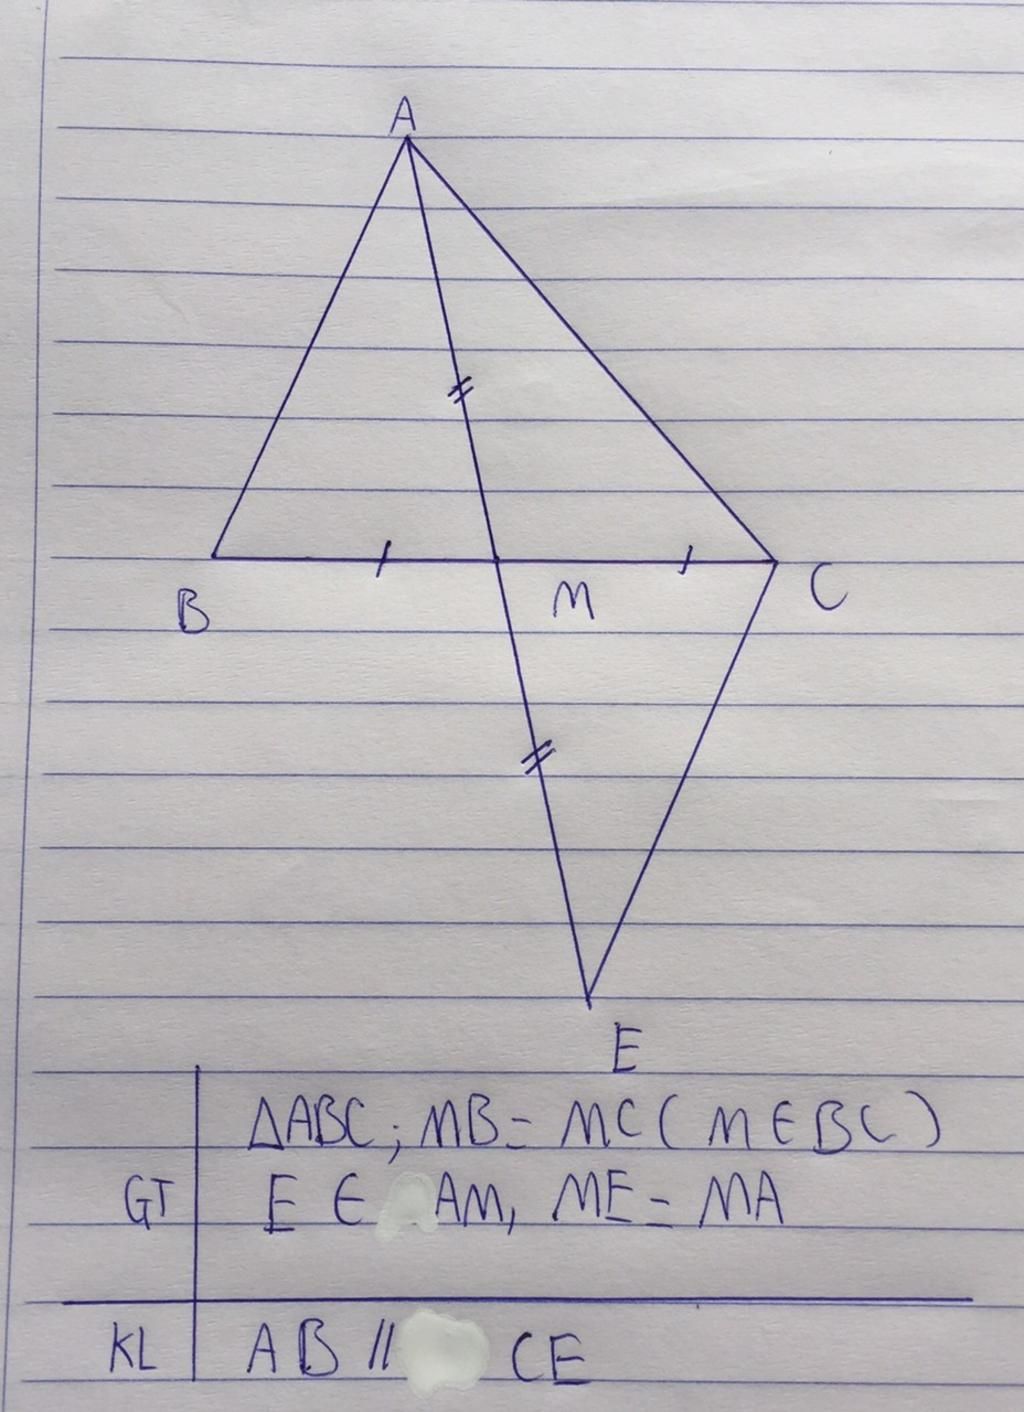 A
B
M
C
E
ΔABC; MB = MC ( M ∈ BC )
GT
E ∈ AM, ME = MA
KL
AB // CE